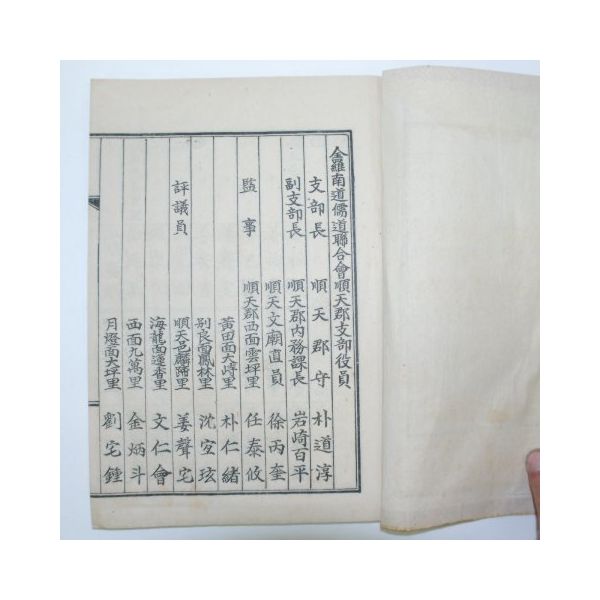 全羅南道儒道聯合會順天郡支部役員
支部長 順天郡守 朴道淳
副支部長 順天郡內務課長 岩崎百平
順天文廟直員 徐丙奎
監事 順天郡西面雲坪里 任泰攸
黃田面大峙里 朴仁緖
別良面鳳林里 沈宜玹
評議員 順天邑 姜聲宅
海龍面 里 文仁會
西面九萬里 金炳斗
月燈面大坪里 劉宅鍾